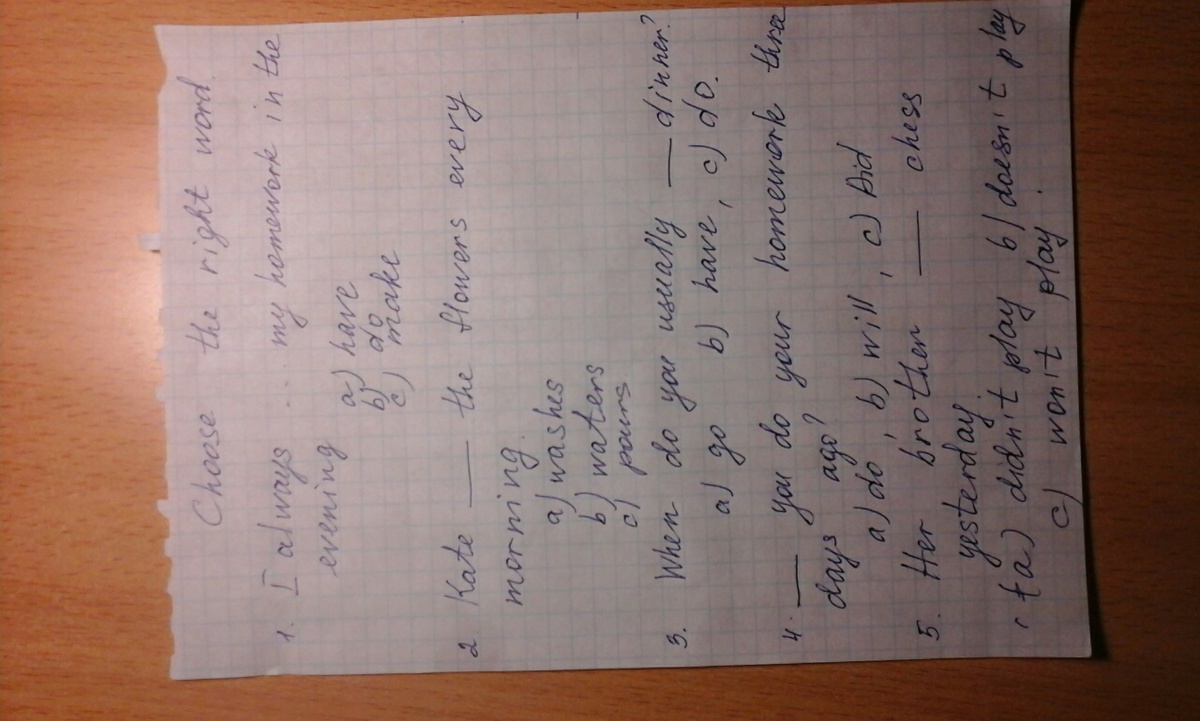 Choose the right word.
1. I always ... my homework in the
evening
a) have
b) do
c) make
2 Kate ___ the flowers every
morning.
a) washes
b) waters
c) pours
3. When do you usually ___ dinner?
a) go b) have, c) do.
4. ___ you do your homework three
days ago?
a) do, b) will, c) Did
5. Her brother ___ chess
yesterday.
a) didn't play b) doesn't play
c) won't play.